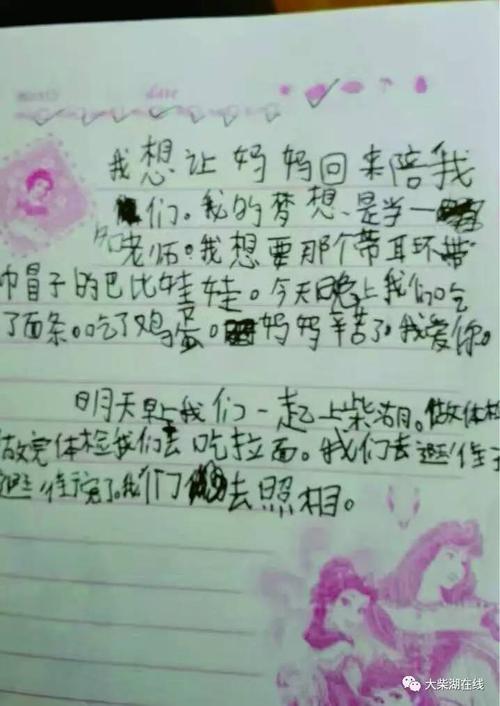 date
我想让妈妈回来陪我
们。我的梦想、是当一
名老师。我想要那个带耳环带
巾冒子的巴比娃娃。今天晚上我们吃
了面条。吃了鸡蛋。妈妈辛苦了。我爱你。
明天早上我们一起上柴湖。做体检
做完体检我们去吃拉面。我们去
完了。我们去照相。
大柴湖在线